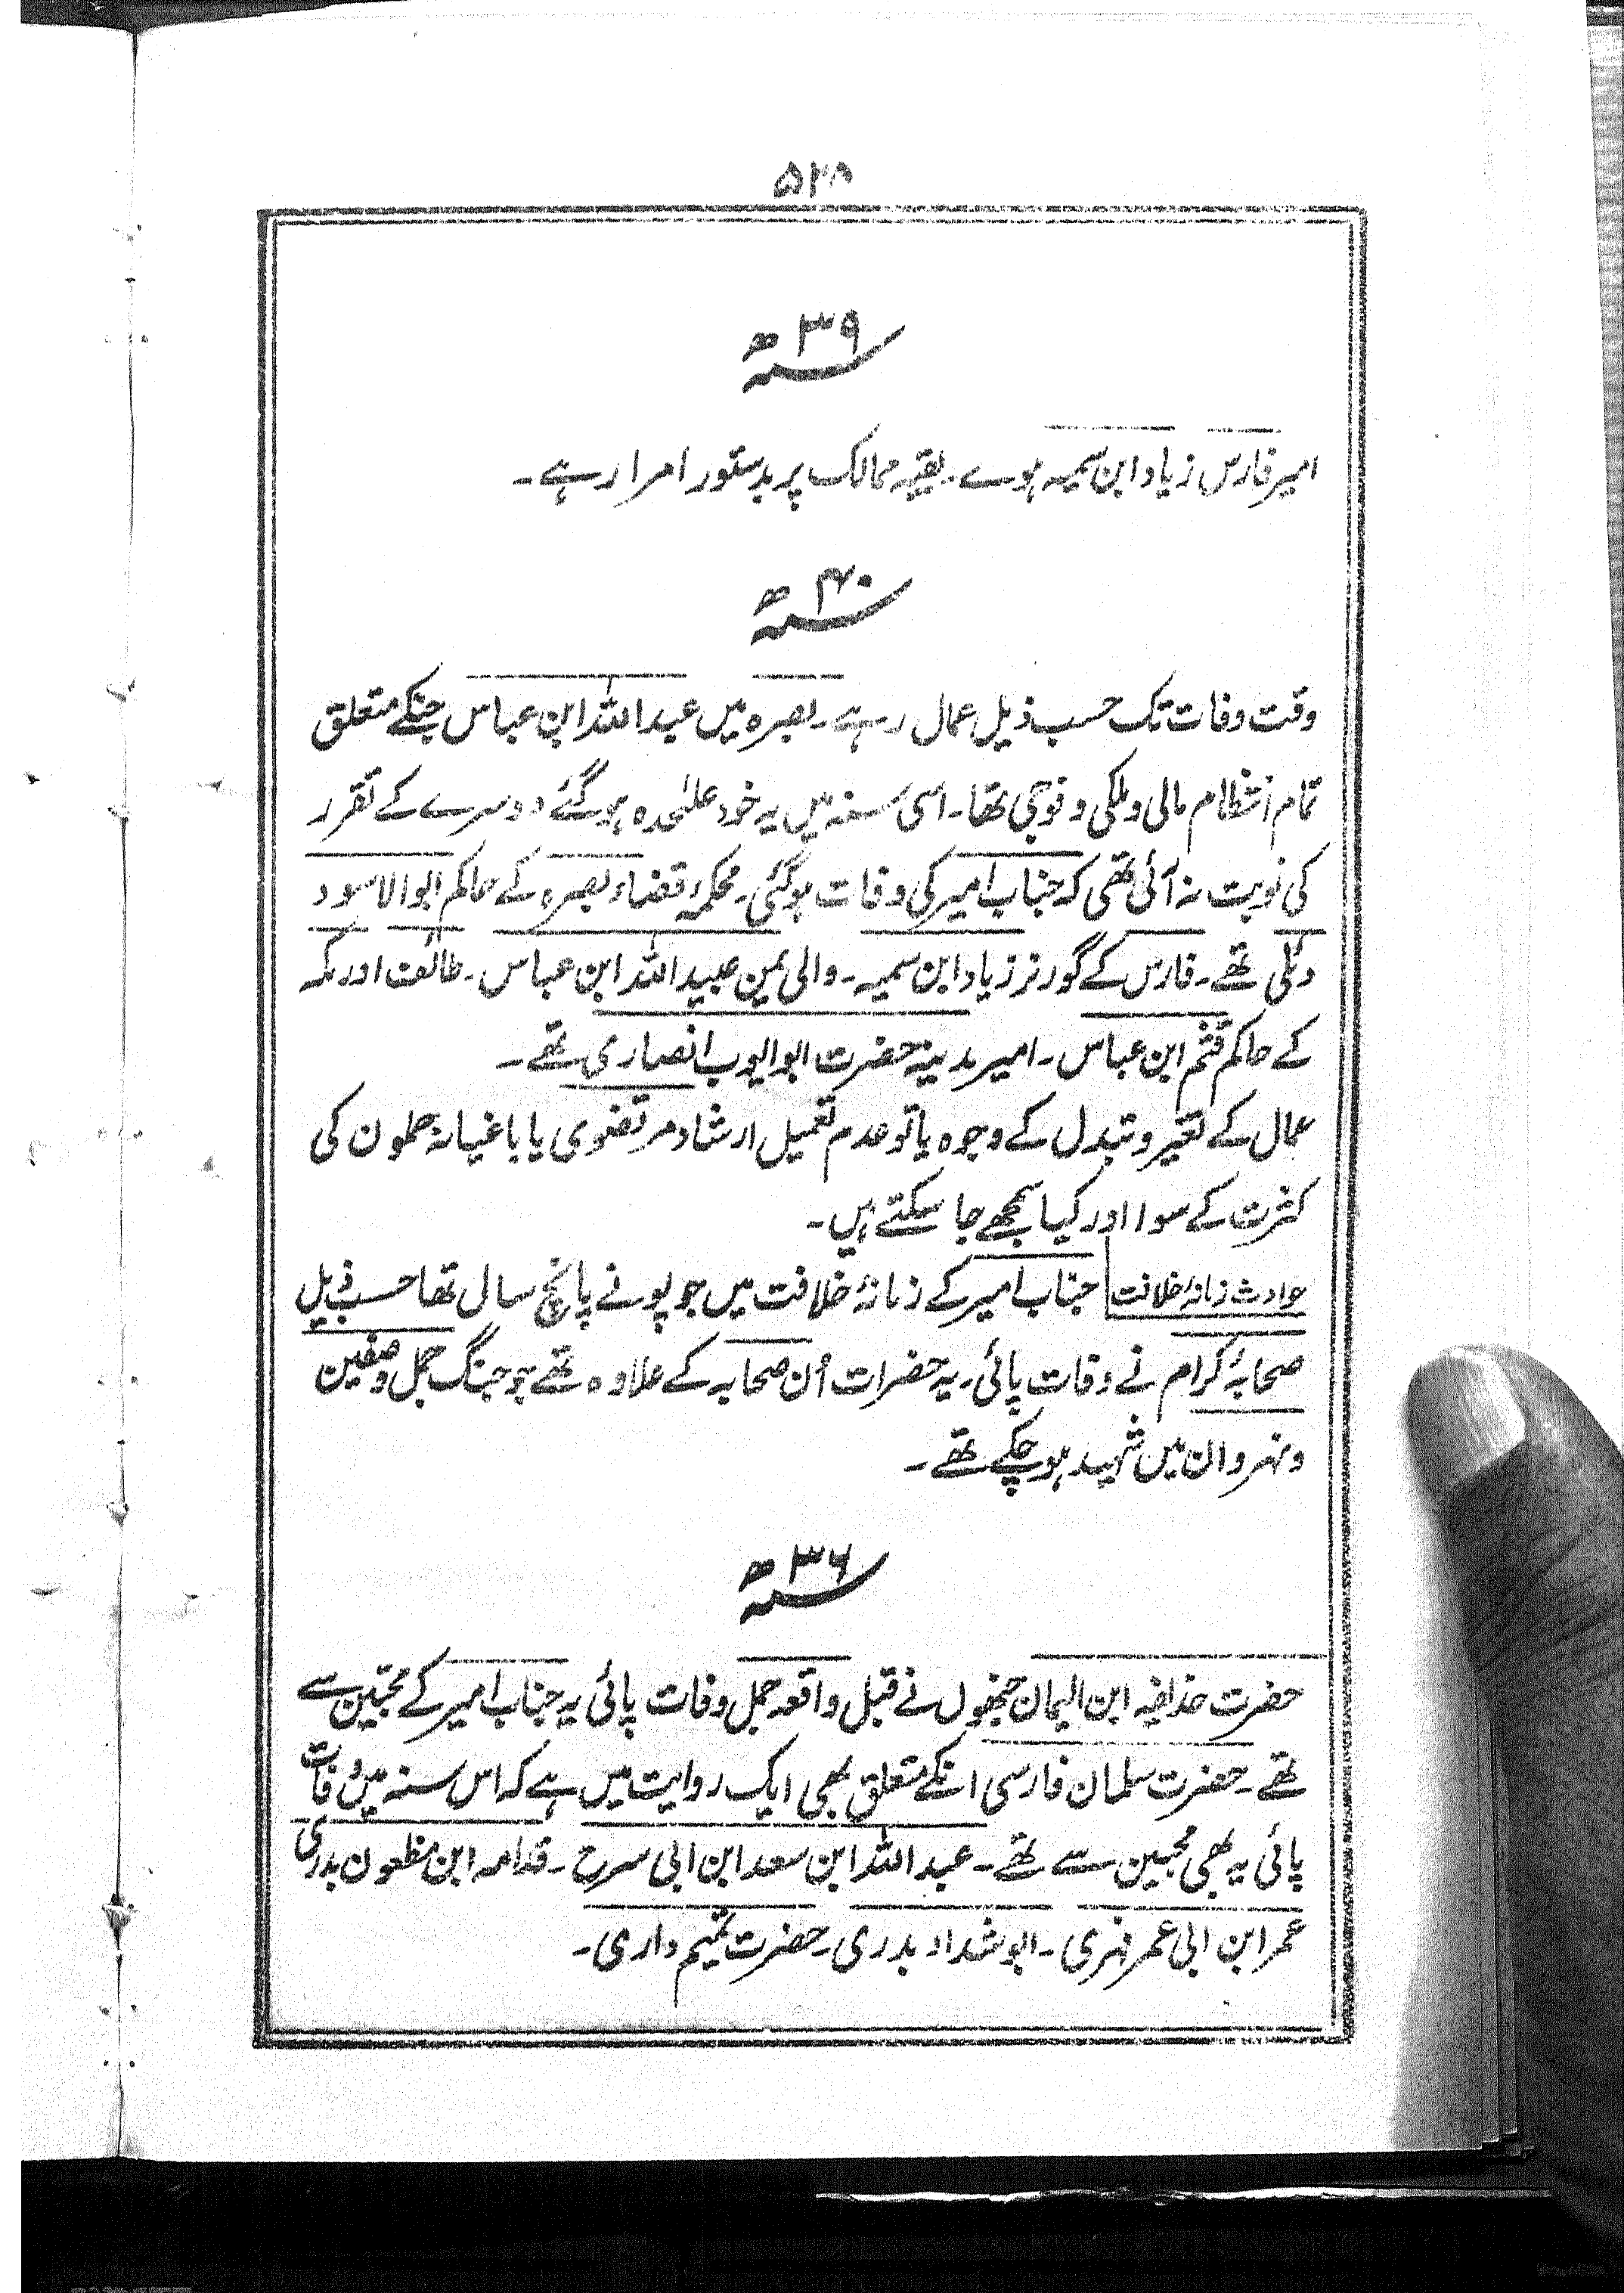 ۵۲۸
سنہ ۳۹ ھ
امیر فارس زیاد ابن سمیہ ہوے۔ بقیہ ممالک پر بدستور امرا رہے۔
سنہ ۴۰ ھ
وقت وفات تک حسب ذیل عمال رہے۔ بصرہ میں عبداللہ ابن عباس جنکے متعلق
تمام انتظام مالی و ملکی و فوجی تھا۔ اسی سنہ میں یہ خود علٰحدہ ہوگئے دوسرے کے تقرر
کی نوبت نہ آئی تھی کہ جناب امیر کی وفات ہوگئی۔ محکمۂ قضاء بصرہ کے حاکم ابوالاسود
دئلی تھے۔ فارس کے گورنر زیاد ابن سمیہ۔ والی یمن عبید اللہ ابن عباس۔ طائف اور مکہ
کے حاکم قثم ابن عباس۔ امیر مدینہ حضرت ابو ایوب انصاری تھے۔
عمال کے تغیر و تبدل کے وجوہ یا تو عدم تعمیل ارشاد مرتضوی یا باغیانہ حملون کی
کثرت کے سوا اور کیا سمجھے جا سکتے ہیں۔
حوادث زمانۂ خلافت جناب امیر کے زمانۂ خلافت میں جو پونے پانچ سال تھا حسب ذیل
صحابۂ کرام نے وفات پائی۔ یہ حضرات اُن صحابہ کے علاوہ تھے جو جنگ جمل و صفین
و نہروان میں شہید ہو چکے تھے۔
سنہ ۳۶ ھ
حضرت حذیفہ ابن الیمان جنھوں نے قبل واقعہ جمل وفات پائی یہ جناب امیر کے محبّین سے
تھے۔ حضرت سلمان فارسی انکے متعلق بھی ایک روایت میں ہے کہ اس سنہ میں وفات
پائی یہ بھی محبین سے تھے۔ عبداللہ ابن سعد ابن ابی سرح۔ قدامہ ابن مظعون بدری
عمر ابن ابی عمر فہری۔ ابو شداد بدری۔ حضرت تمیم داری۔